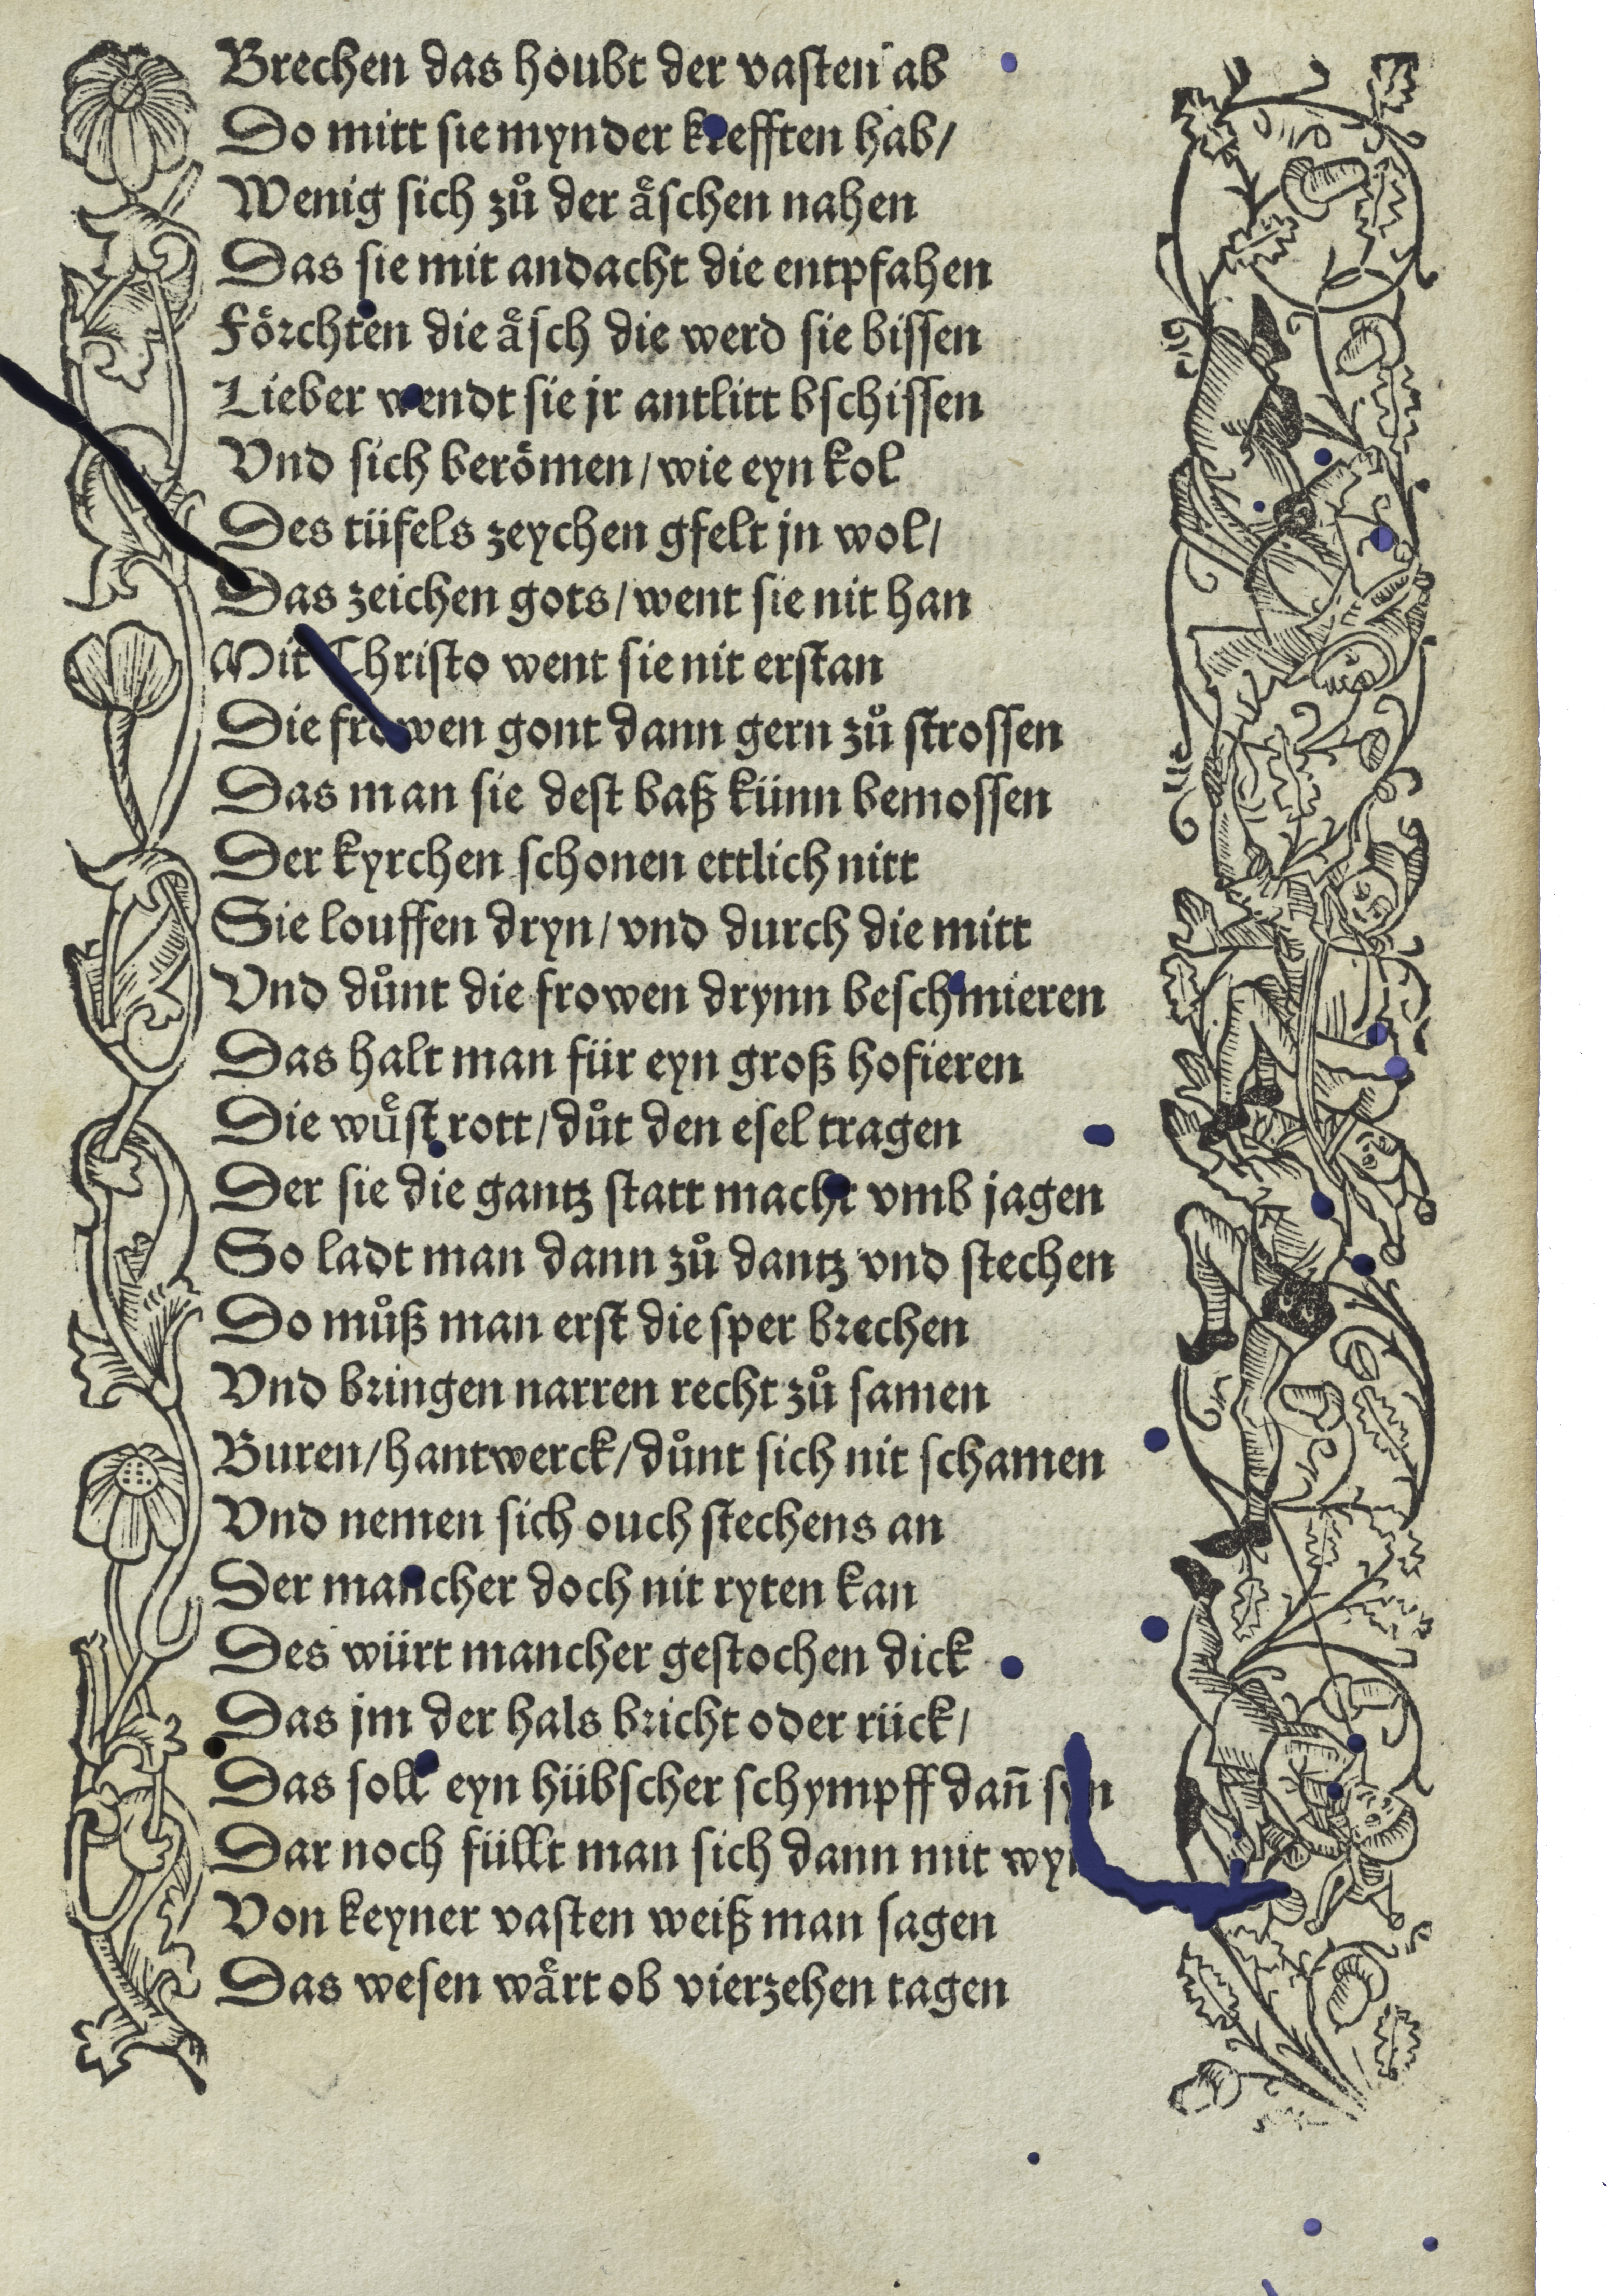 Brechen das houbt der vasten ab
Do mitt sie mynder krefften hab/
Wenig sich zuͦ der aͤschen nahen
Das sie mit andacht die entpfahen
Foͤrchten die aͤsch die werd sie bissen
Lieber wendt sie jr antlitt bschissen
Vnd sich beroͤmen/wie eyn kol
Des tüfels zeychen gfelt jn wol/
Das zeichen gots/went sie nit han
Mit Christo went sie nit erstan
Die frowen gont dann gern zuͦ strossen
Das man sie dest baß künn bemossen
Der kyrchen schonen ettlich nitt
Sie louffen dryn/vnd durch die mitt
Vnd duͦnt die frowen drynn beschmieren
Das halt man für eyn groß hofieren
Die wuͤst rott/duͦt den esel tragen
Der sie die gantz statt macht vmb jagen
So ladt man dann zuͦ dantz vnd stechen
Do muͦß man erst die sper brechen
Vnd bringen narren recht zuͦ samen
Buren/hantwerck/duͦnt sich nit schamen
Vnd nemen sich ouch stechens an
Der mancher doch nit ryten kan
Des würt mancher gestochen dick
Das jm der hals bricht oder rück/
Das soll eyn hübscher schympff dañ syn
Dar noch füllt man sich dann mit wyn
Von keyner vasten weiß man sagen
Das wesen waͤrt ob vierzehen tagen